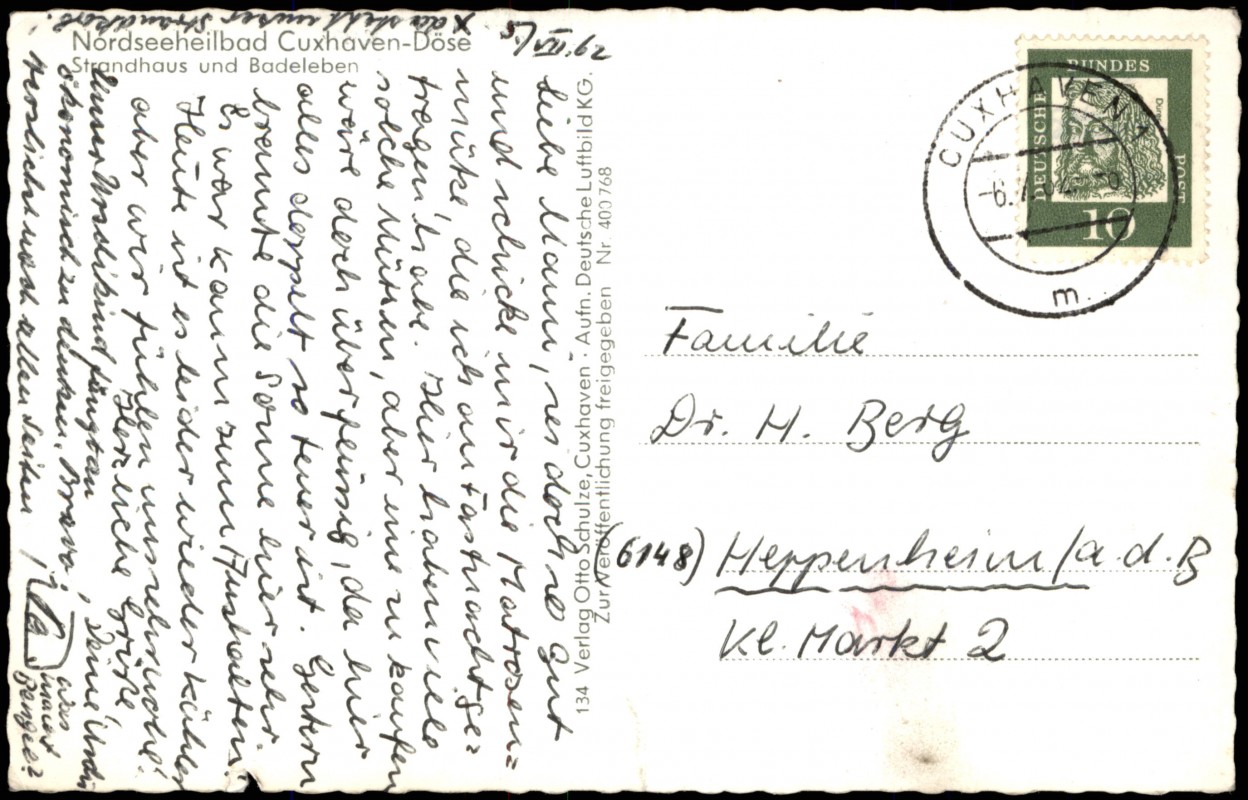 x da steht unser Strandkorb!
Nordseeheilbad Cuxhaven-Döse
Strandhaus und Badeleben
5/VII.62
Liebe Mami, sei doch so gut
und schicke mir die Matrosen=
mütze, die ich an Fastnacht ge=
tragen habe. Hier haben viele
solche Mützen, aber eine zu kaufen
wäre doch überflüssig, da hier
alles doppelt so teuer ist. Gestern
brannte die Sonne hier sehr.
Es war kaum zum Aushalten.
Heute ist es leider wieder kühler
aber wir fühlen uns sehr wohl!
Herzliche Grüße,
Deine
Unser fängt an
ökonomisch zu denken, Bravo!
Herzlichst nach allen Seiten
134 Verlag Otto Schulze, Cuxhaven · Aufn. Deutsche Luftbild KG.
Zur Veröffentlichung freigegeben Nr. 400 768
CUXHAVEN 1
-6.7.62
m
DEUTSCHE
BUNDES
POST
10
Familie
Dr. H. Berg
(6148) Heppenheim/a.d.B
Kl. Markt 2